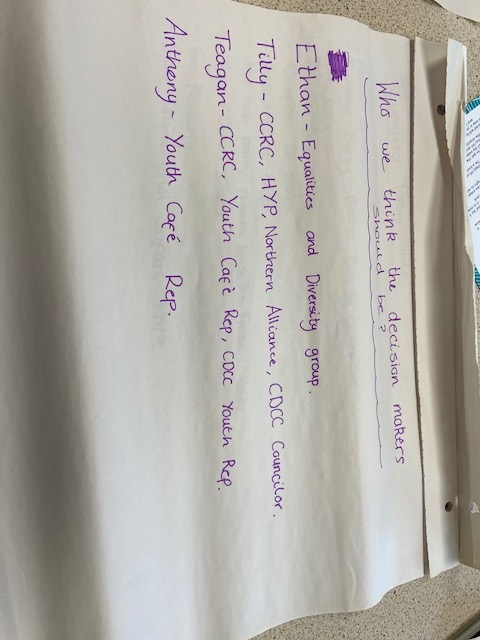 Who we think the decision makers
should be?
Ethan - Equalities and Diversity group.
Tilly - CCRC, HYP, Northern Alliance, CDCC Councilor.
Teagan - CCRC, Youth Café Rep, CDCC Youth Rep.
Anthony - Youth Café Rep.